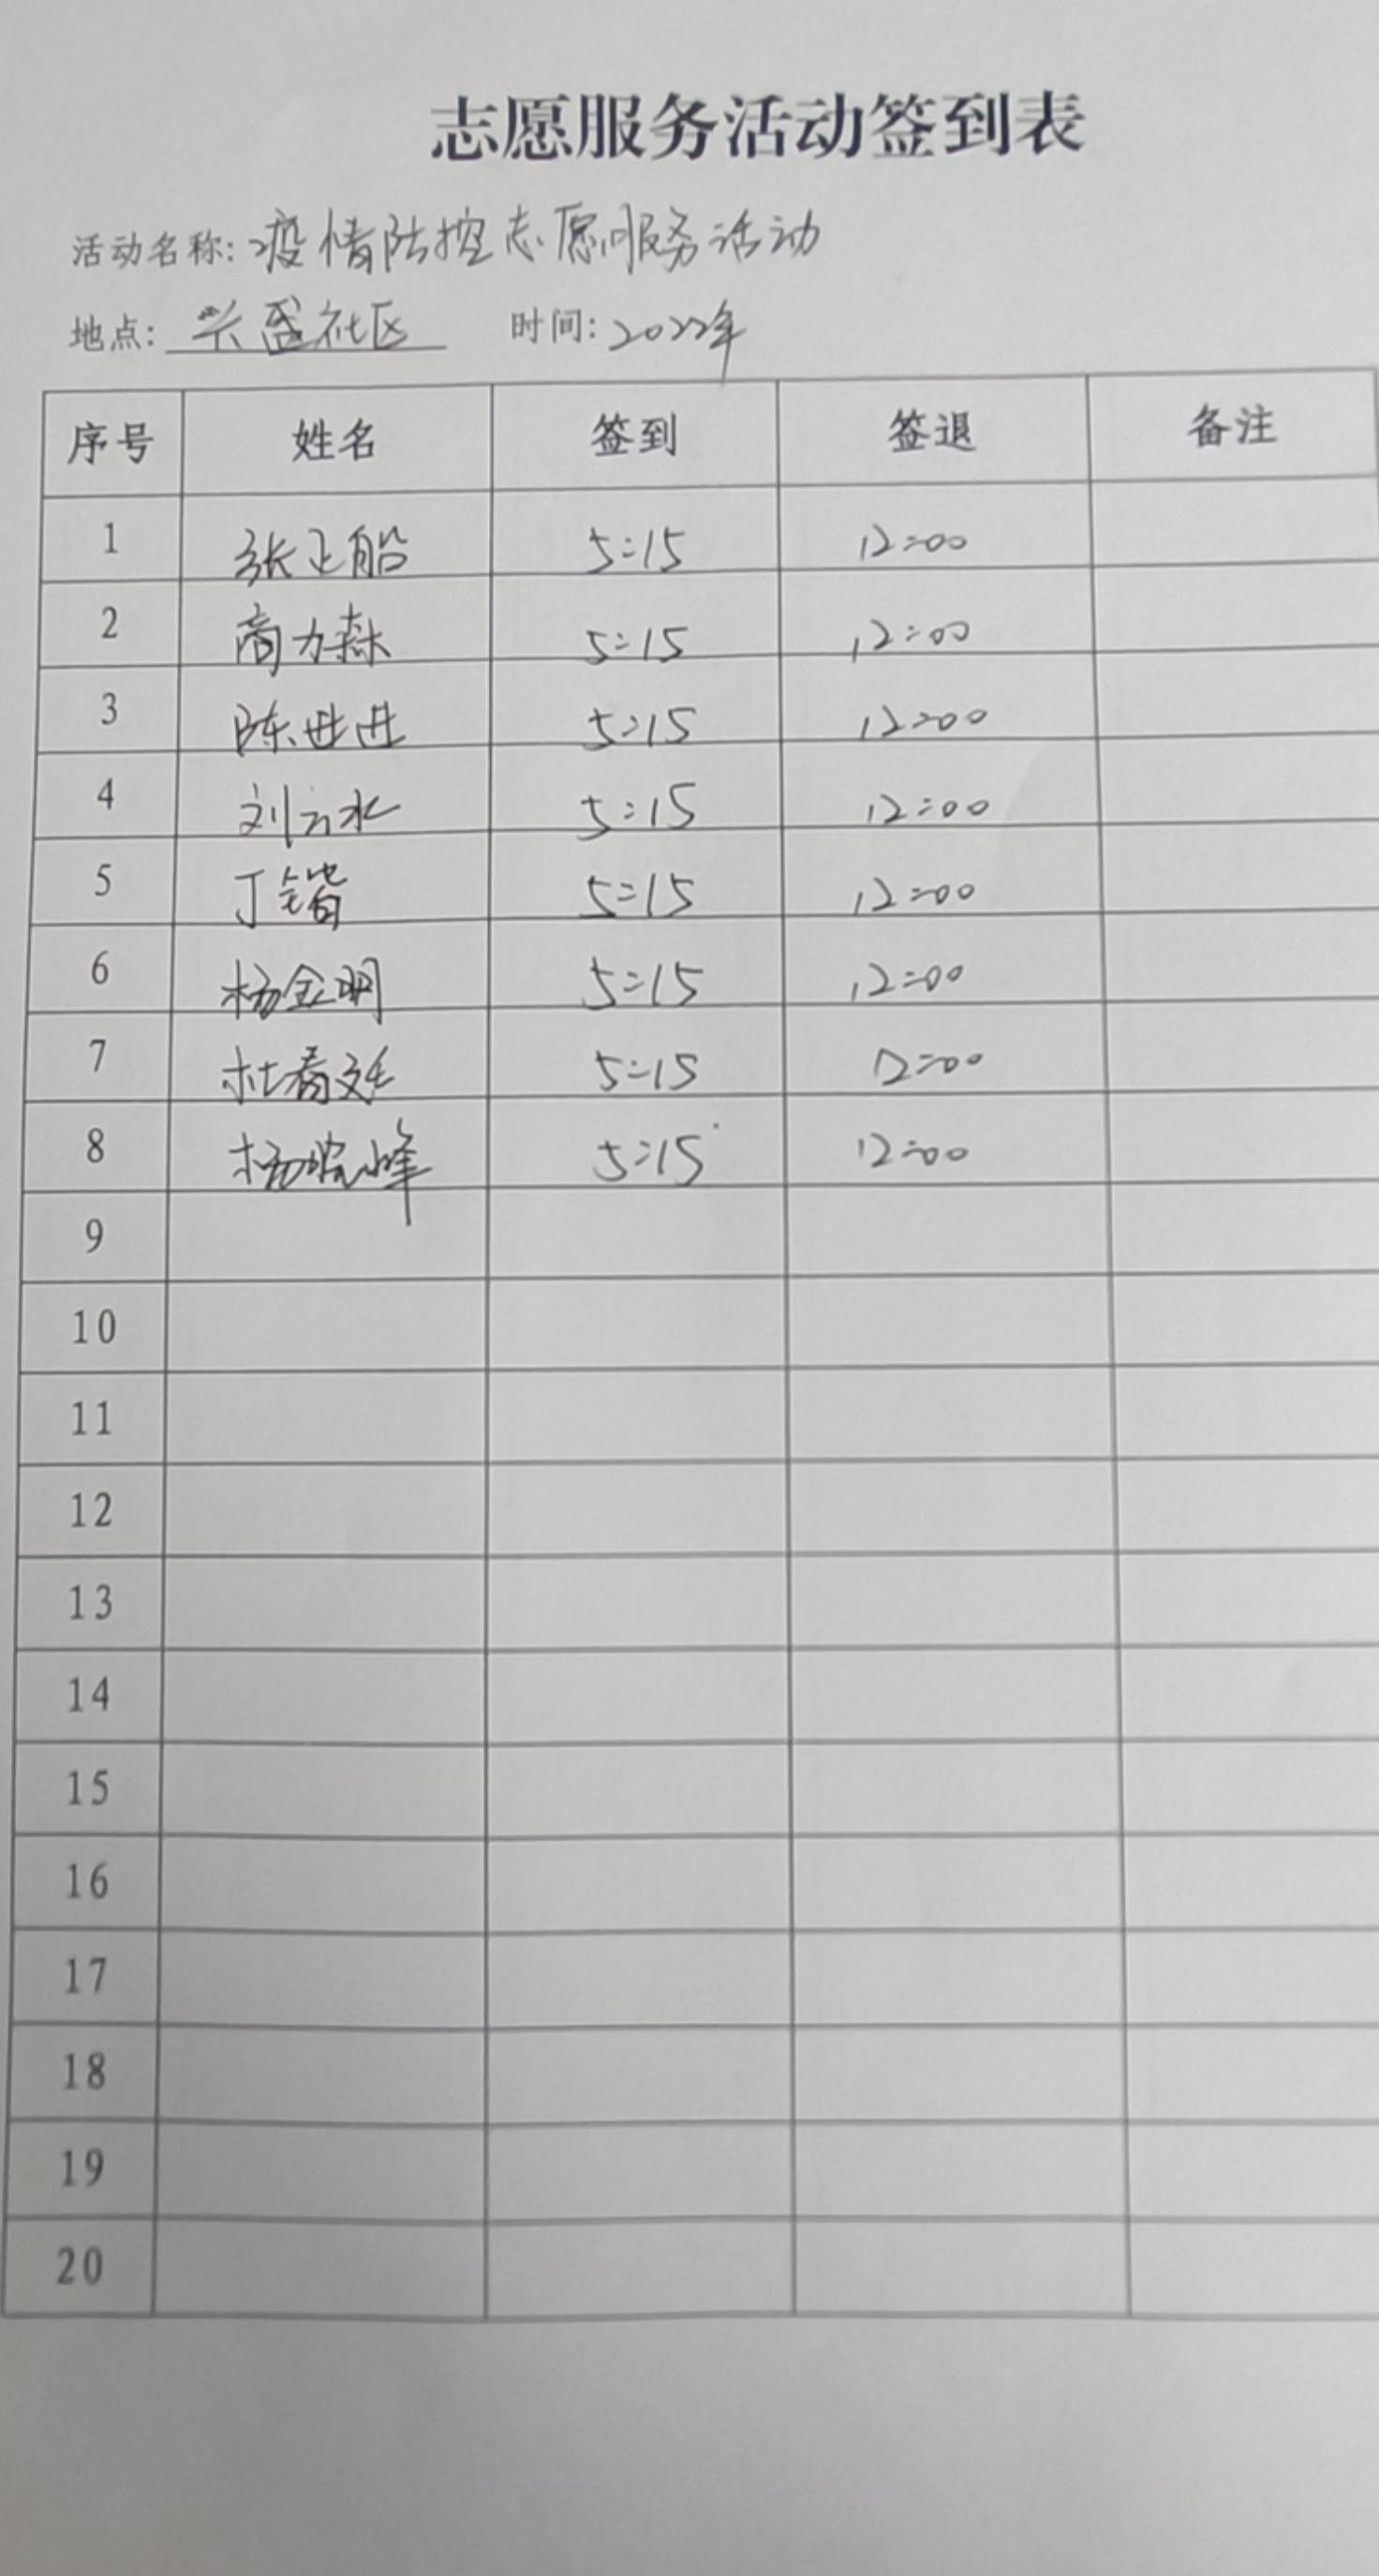 志愿服务活动签到表
活动名称: 疫情防控志愿服务活动
地点: 兴盛社区 时间: 2022年
序号 姓名 签到 签退 备注
1 张正船 5:15 12:00
2 商力森 5:15 12:00
3 陈进进 5:15 12:00
4 刘云水 5:15 12:00
5 丁锴 5:15 12:00
6 杨金明 5:15 12:00
7 杜春廷 5:15 12:00
8 杨晓峰 5:15 12:00
9
10
11
12
13
14
15
16
17
18
19
20